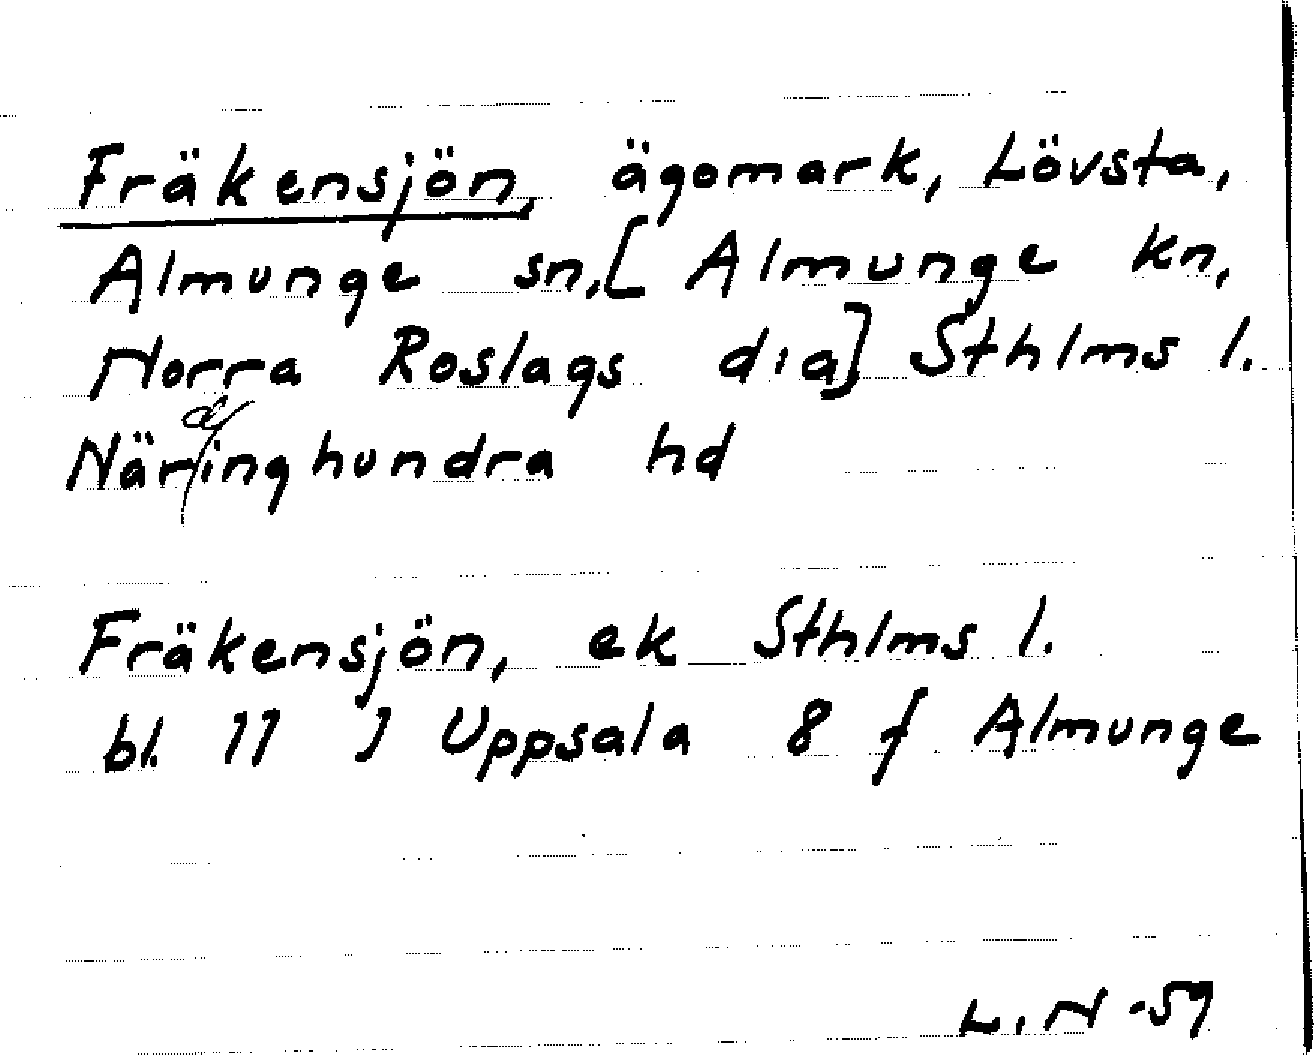 Fräkensjön, ägomark, Lövsta,
Almunge sn, [Almunge kn,
Norra Roslags dia] Sthlms l.
Närdinghundra hd
Fräkensjön, ek Sthlms l.
bl. 11 J Uppsala 8 f Almunge
L. N -59